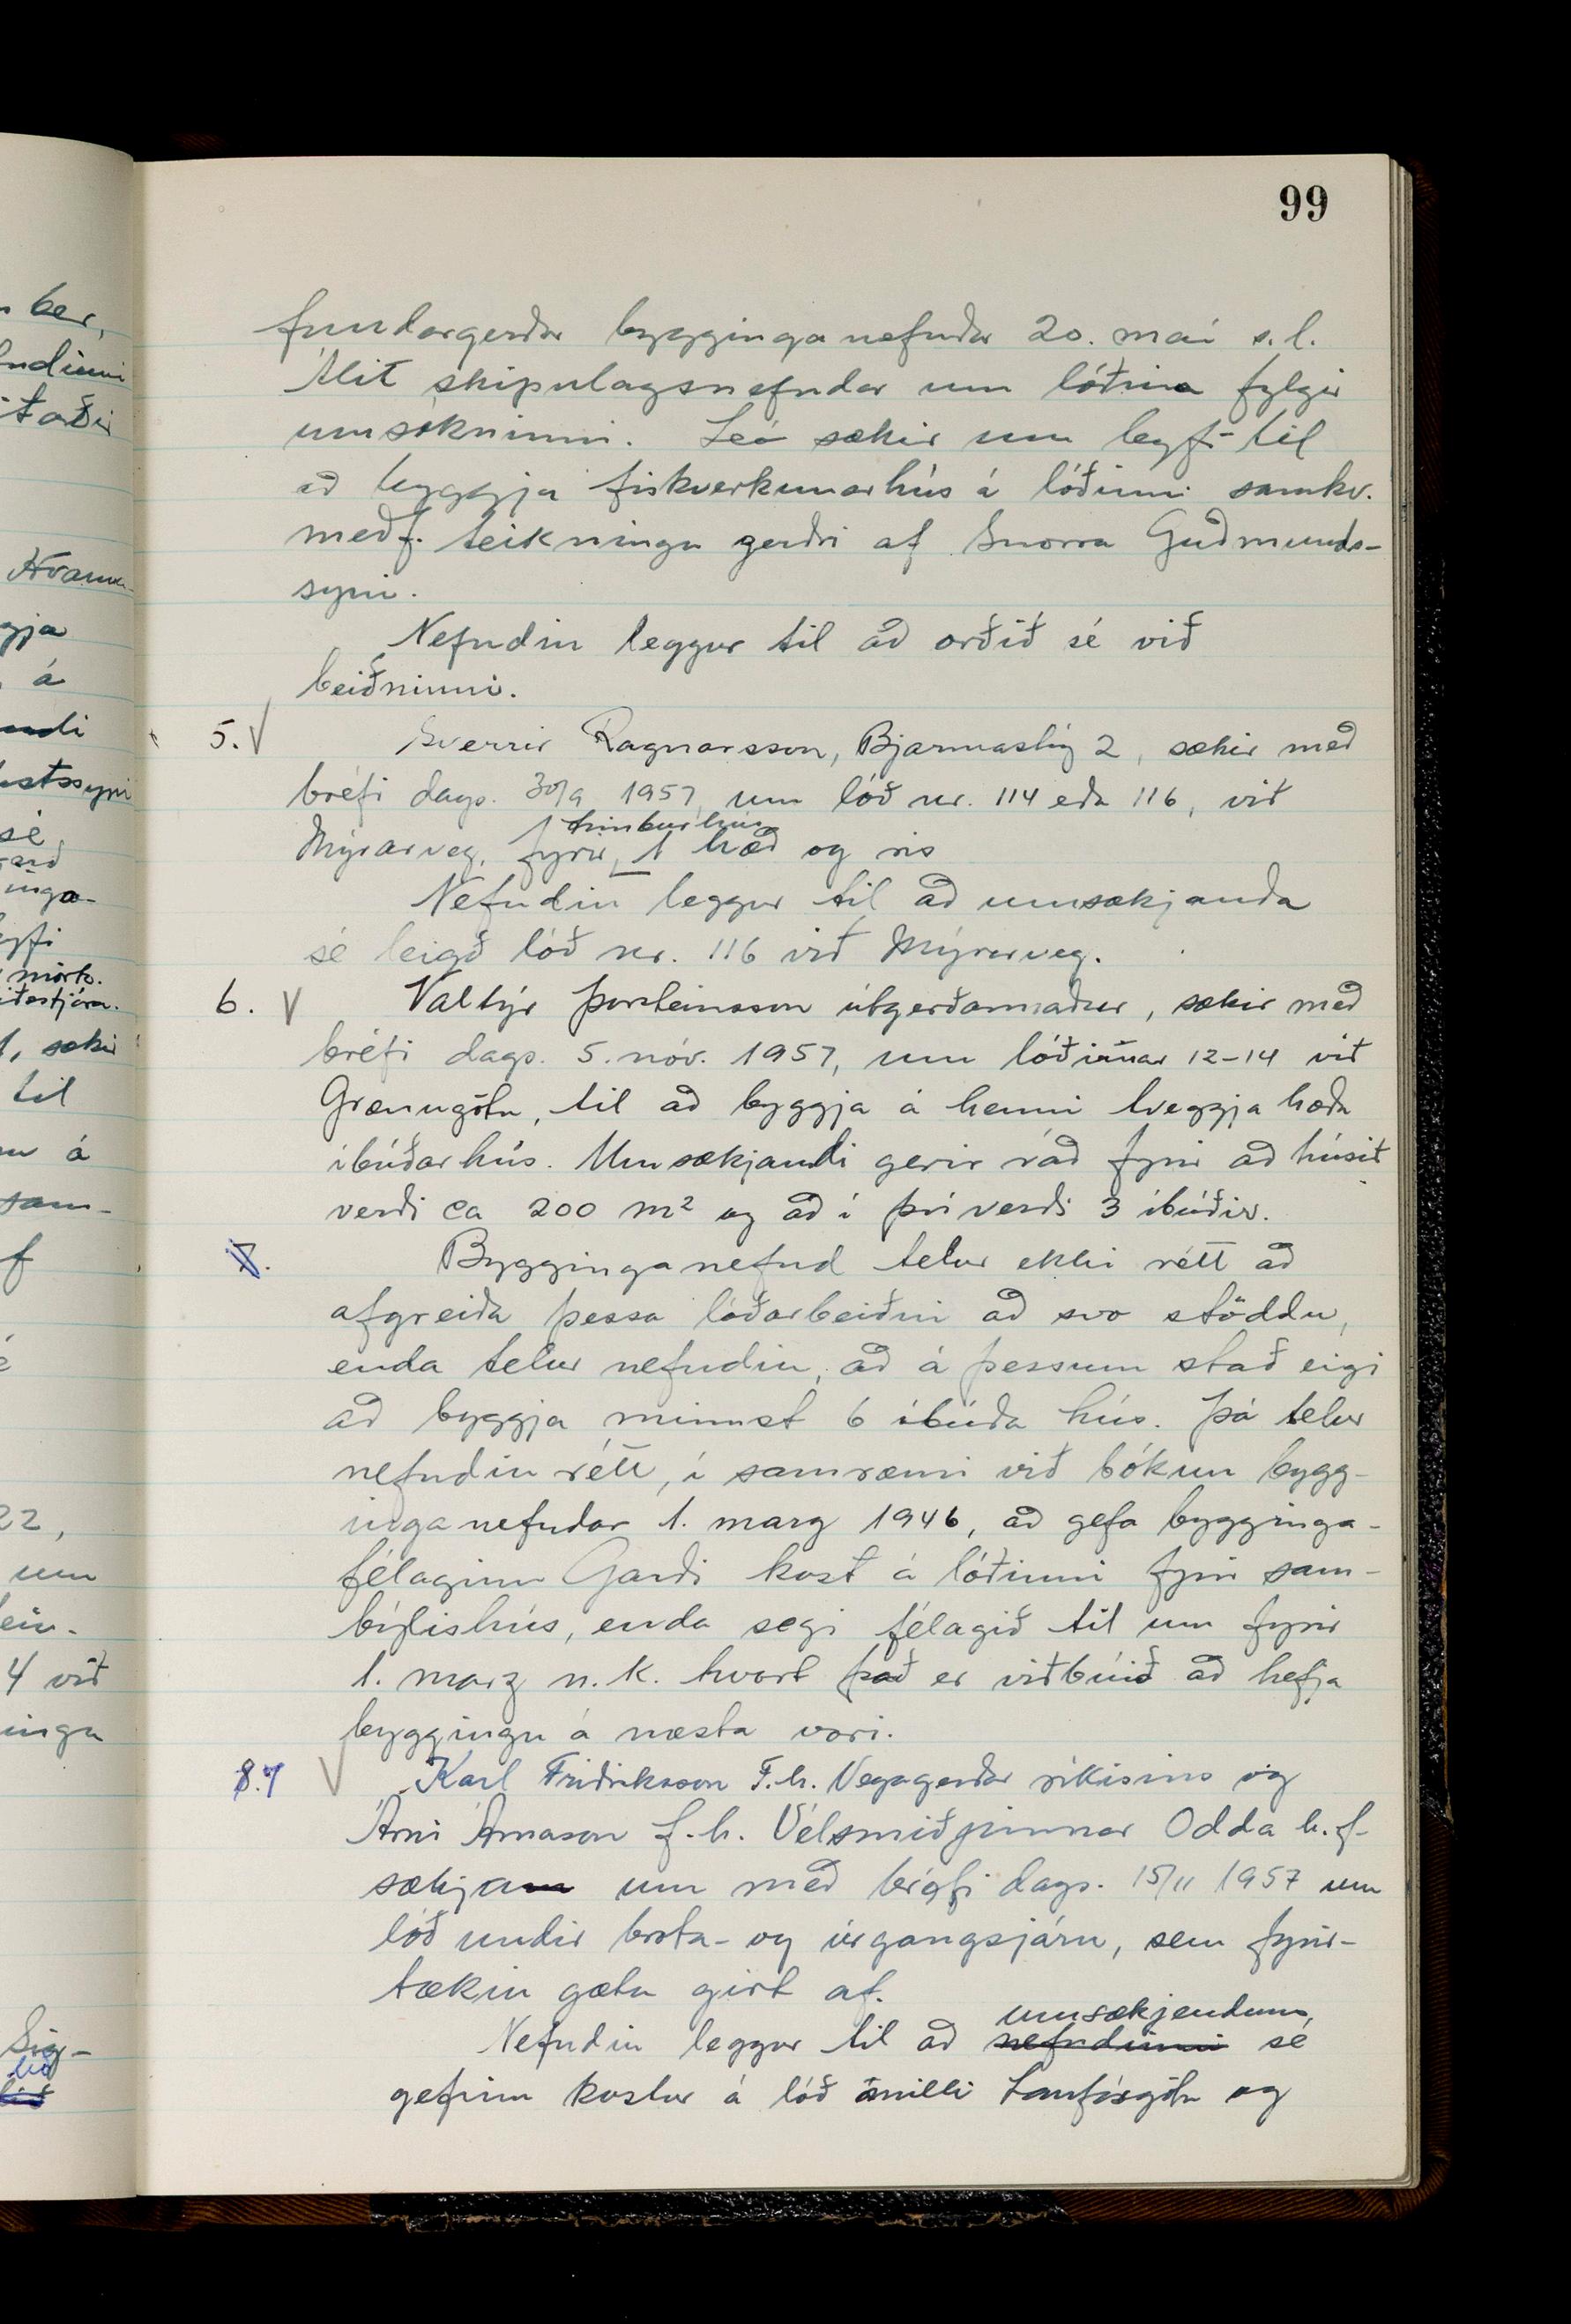 99
fundargerðar bygginganefndar 20. maí s.l.
Álit skipulagsnefndar um lóðina fylgir
umsókninni. Leó sækir um leyfi til
að byggja fiskverkunarhús á lóðinni samkv.
meðf. teikningu gerðri af Snorra Guðmunds-
syni.
Nefndin leggur til að orðið sé við
beiðninni.
5. V Sverrir Ragnarsson, Bjarmastíg 2, sækir með
bréfi dags. 30/9 1957, um lóð nr. 114 eða 116, við
timburhús
Mýrarveg, fyrir 1 hæð og ris
Nefndin leggur til að umsækjanda
sé leigð lóð nr. 116 við Mýrarveg.
6. V Valtýr Þorsteinsson útgerðarmaður, sækir með
bréfi dags. 5. nóv. 1957, um lóðirnar 12-14 við
Grænugötu, til að byggja á henni tveggja hæða
íbúðarhús. Umsækjandi gerir ráð fyrir að húsið
verði ca 200 m² og að í því verði 3 íbúðir.
7. Bygginganefnd telur ekki rétt að
afgreiða þessa lóðarbeiðni að svo stöddu,
enda telur nefndin, að á þessum stað eigi
að byggja minnst 6 íbúða hús. Þá telur
nefndin rétt, í samræmi við bókun bygg-
inganefndar 1. marz 1946, að gefa bygginga-
félaginu Garði kost á lóðinni fyrir sam-
býlishús, enda segi félagið til um fyrir
1. marz n.k. hvort það er viðbúið að hefja
byggingu á næsta vori.
8. 7 V Karl Friðriksson F.h. Vegagerðar ríkisins og
Árni Árnason f.h. Vélsmiðjunnar Odda h.f.
sækja um með bréfi dags. 15/11 1957 um
lóð undir brota- og úrgangsjárn, sem fyrir-
tækin gætu girt af.
umsækjendum
Nefndin leggur til að nefndinni sé
gefinn kostur á lóð ámilli Laufásgötu og